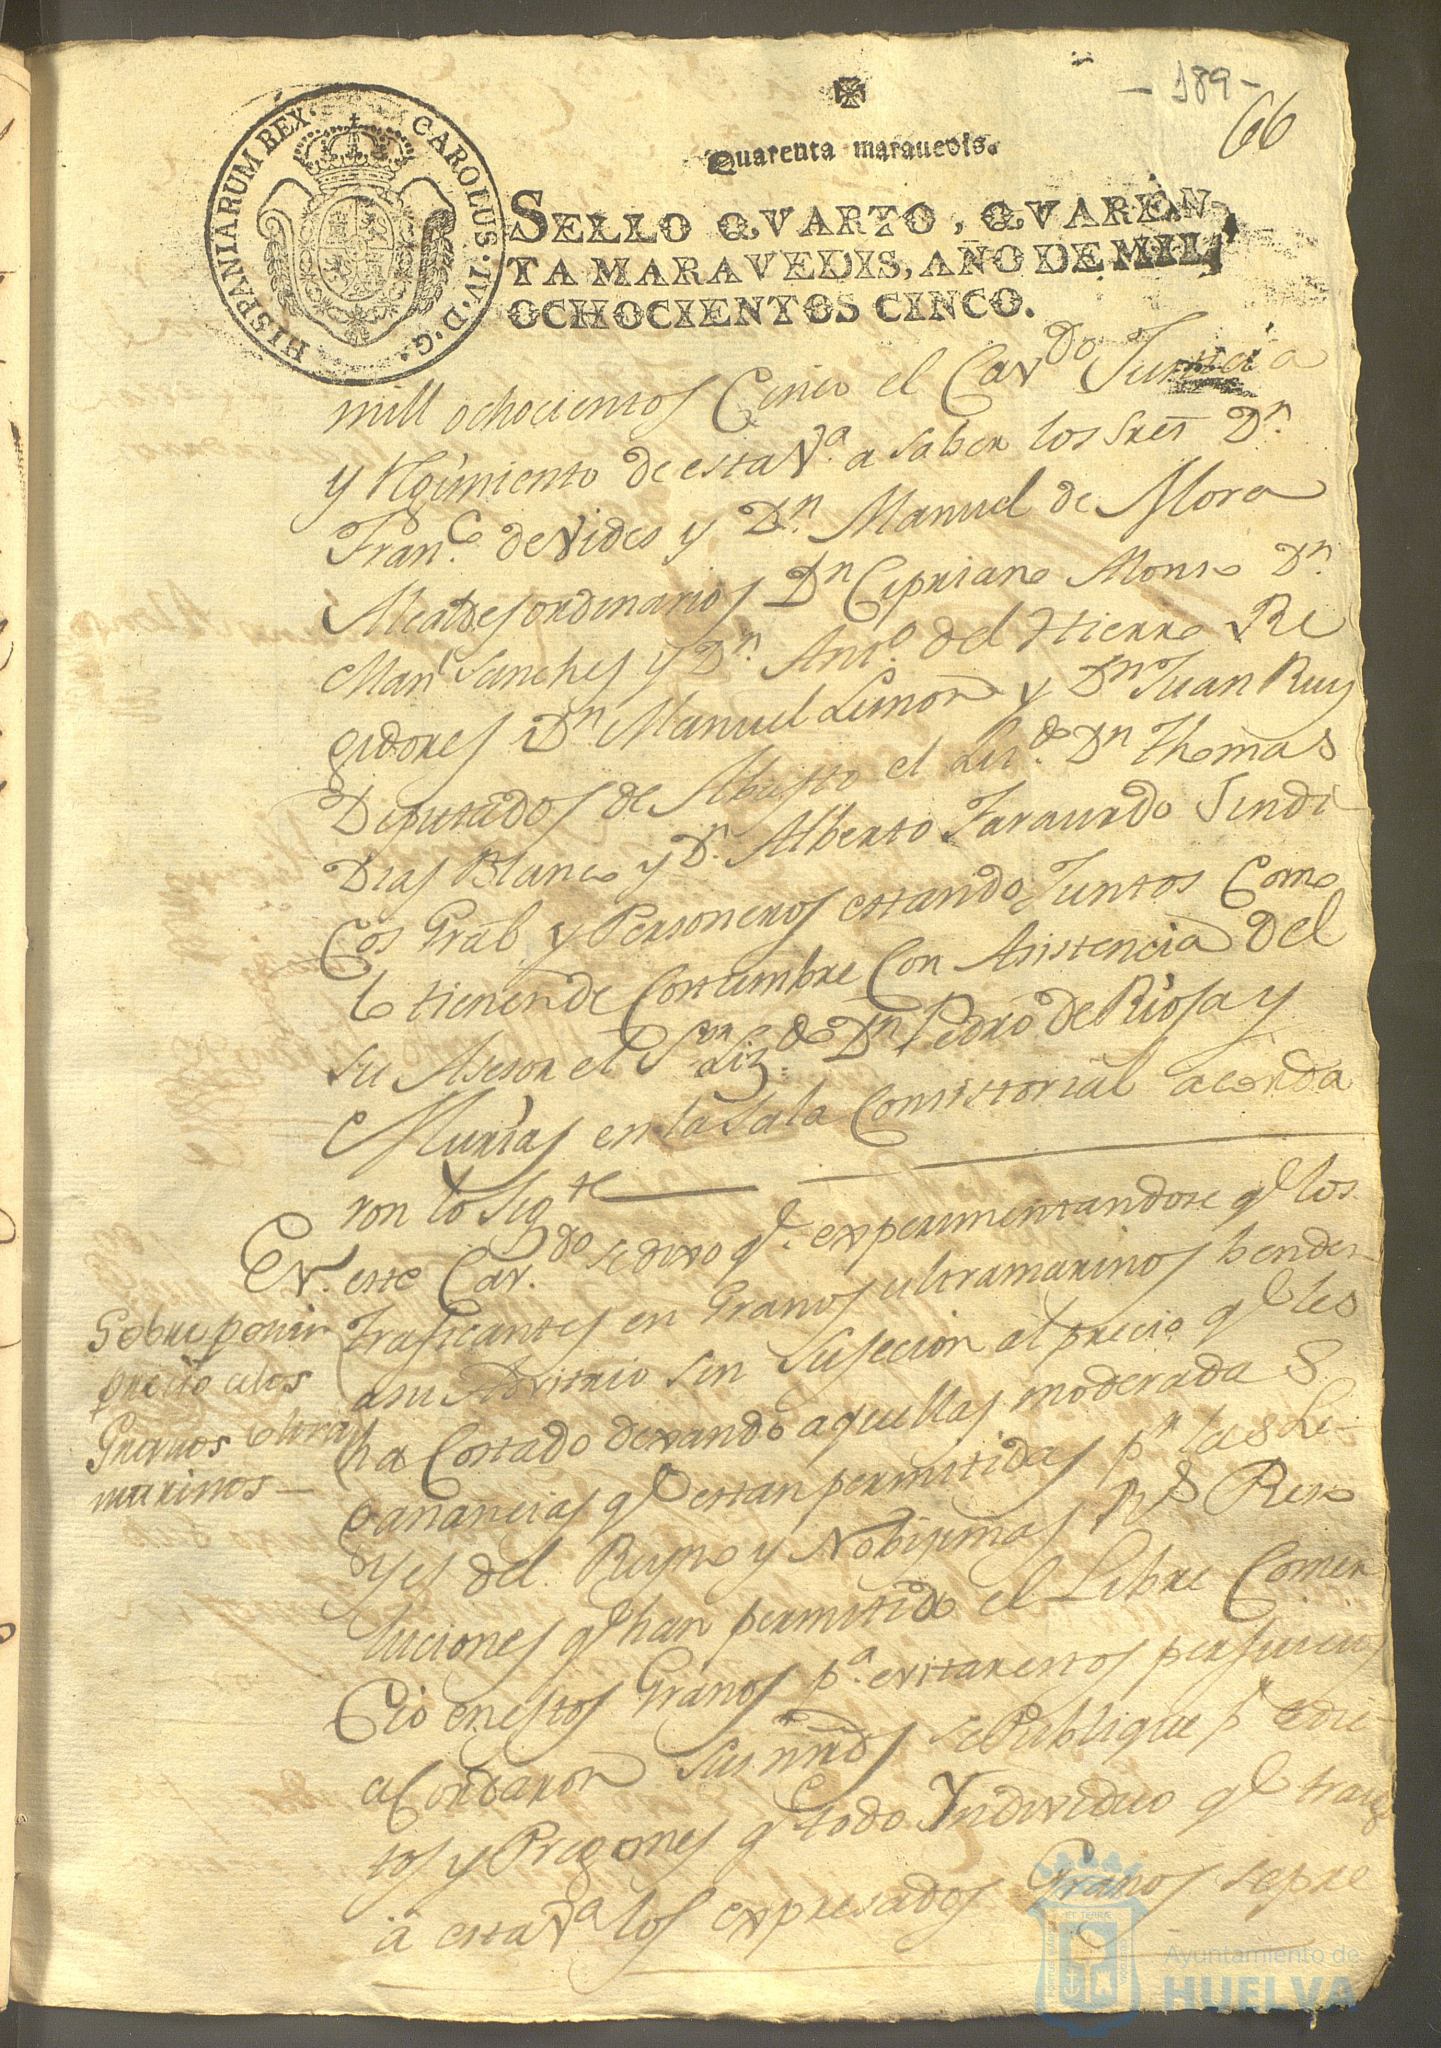 - 189 -
66
Quarenta maravedis.
HISPANIARUM REX. CAROLUS. IV. D. G.
SELLO QVARTO, QVAREN
TA MARAVEDIS, AÑO DE MIL
OCHOCIENTOS CINCO.
mill ochocientos Cinco el Cav.do Justicia
y Regimiento de esta V.a a saber los Sres D.n
Fran.co de Vides y D.n Manuel de Mora
Alcaldes ordinarios D.n Cipriano Alonso D.n
Man.l Sanches y D.n Ant.o del Hierro Re
gidores D.n Manuel Limon y D.n Juan Ruiz
Diputados de Abasto el Liz.do D.n Thomas
Dias Blanco y D.n Alberto Faraurdo Sindi
cos Gral y Personeros estando Juntos Como
lo tienen de Costumbre Con Asistencia Del
su Asesor el S.or Liz.do D.n Pedro de Riosa y
Murias en la Sala Consistorial acorda
ron lo Sig.te
En este Cav.do se dixo q.e experimentandose q.e los
Traficantes en Granos ultramarinos benden
a su Advitrio sin Sujecion al precio q.e les
ha Costado dexando aquellas moderadas
ganancias q.e estan permitidas p.r las Le-
yes del Reyno y Nobisimas R.s Reso
luciones q.e han permitido el Libre Comer
Cio en estos Granos p.a evitar estos perjuicios
aCordaron sus mrds se Publique p.r edic-
tos y Pregones q.e todo Yndividuo q.e traiga
a esta V.a los expresados Granos se pre
Sobre poner
precio a los
Granos ultra
marinos
Ayuntamiento de
HUELVA